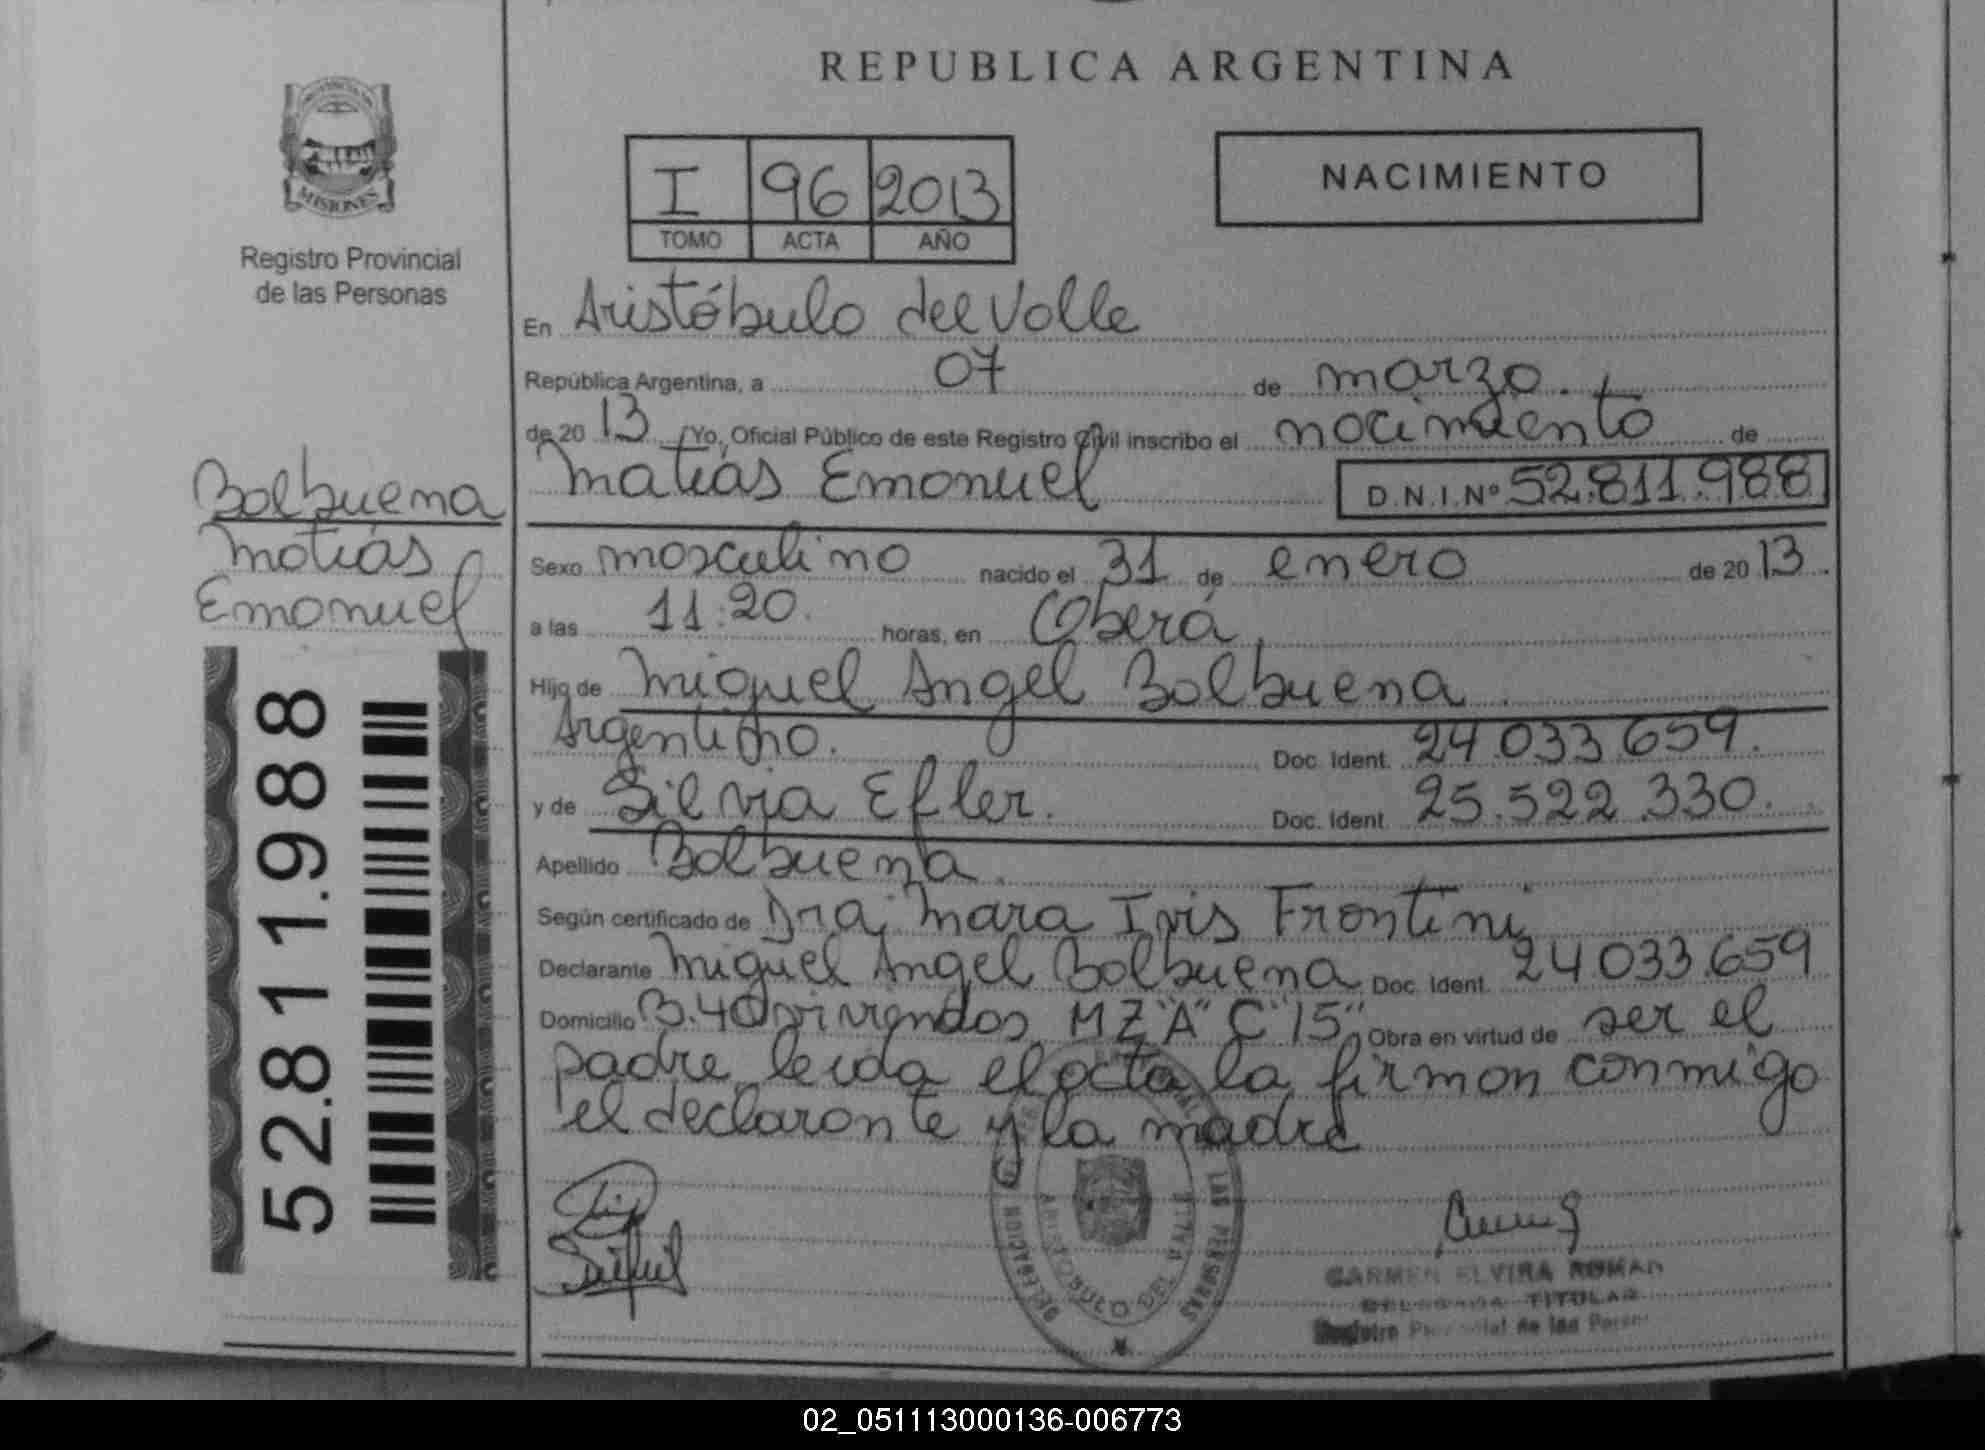 REPUBLICA ARGENTINA
MISIONES
Registro Provincial
de las Personas
I 96 2013
TOMO ACTA AÑO
NACIMIENTO
En Aristóbulo del Valle
República Argentina, a 07 de marzo.
de 20 13 Yo, Oficial Público de este Registro Civil inscribo el nacimiento de
Matias Emanuel D.N.I.Nº 52.811.988
Balbuena
Matias
Emanuel
52.811.988
Sexo masculino nacido el 31 de enero de 20 13.
a las 11:20. horas, en Oberá.
Hijo de Miguel Angel Balbuena.
Argentino. Doc. Ident. 24.033.659.
y de Silvia Efler. Doc. Ident. 25.522.330.
Apellido Balbuena.
Según certificado de Dra. Mara Ivis Frontini
Declarante Miguel Angel Balbuena Doc. Ident. 24.033.659
Domicilio B.40 viviendas MZ"A" C"15" Obra en virtud de ser el
padre leida el acta la firman conmigo
el declarante y la madre
DELEGACION LAS PERSONAS
ARISTOBULO DEL VALLE
CARMEN ELVIRA ROMAN
DELEGADA TITULAR
Registro Provincial de las Person
02_051113000136-006773